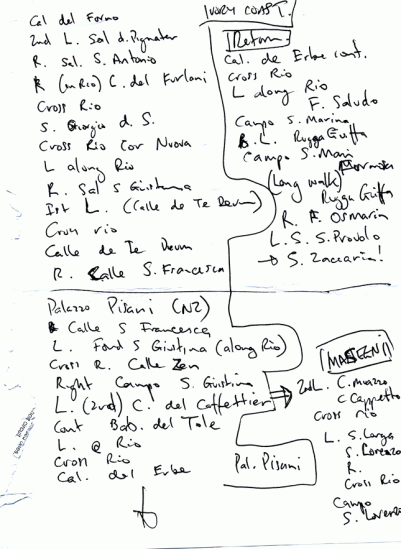 IVORY COAST.
Cal del Forno
2nd L. Sal d. Pignater
R. Sal. S. Antonio
R (on Rio) C. del Furlani
Cross Rio
S. Giorgio d. S.
Cross Rio Cor Nuova
L along Rio
R. Sal S Giustina
Ist L. (Calle de Te Deum)
Cross rio
Calle de Te Deum
R. Calle S. Francesca
Return
Cal. de Erbe cont.
Cross Rio
L along Rio
F. Saludo
Campo S. Marina
L. Rugga Giuffa
Campo S. Mari Formosa
(Long walk)
Rugga Giuffa
R. F. Osmarin
L. S. S. Provolo
→ S. Zaccaria!
Palazzo Pisani (NZ)
Calle S Francesca
L. Fond S Giustina (along Rio)
Cross R. Calle Zen
Right Campo S. Giustina
L. (2nd) C. del Caffettier
Cont Bab. del Tole
L. @ Rio
Cross Rio
Cal. del Erbe
Pal. Pisani
2nd L. C. Muazzo
C Cappello
Cross rio
L. S. Largo
S. Lorenzo
R.
Cross Rio
Campo
S. Lorenzo